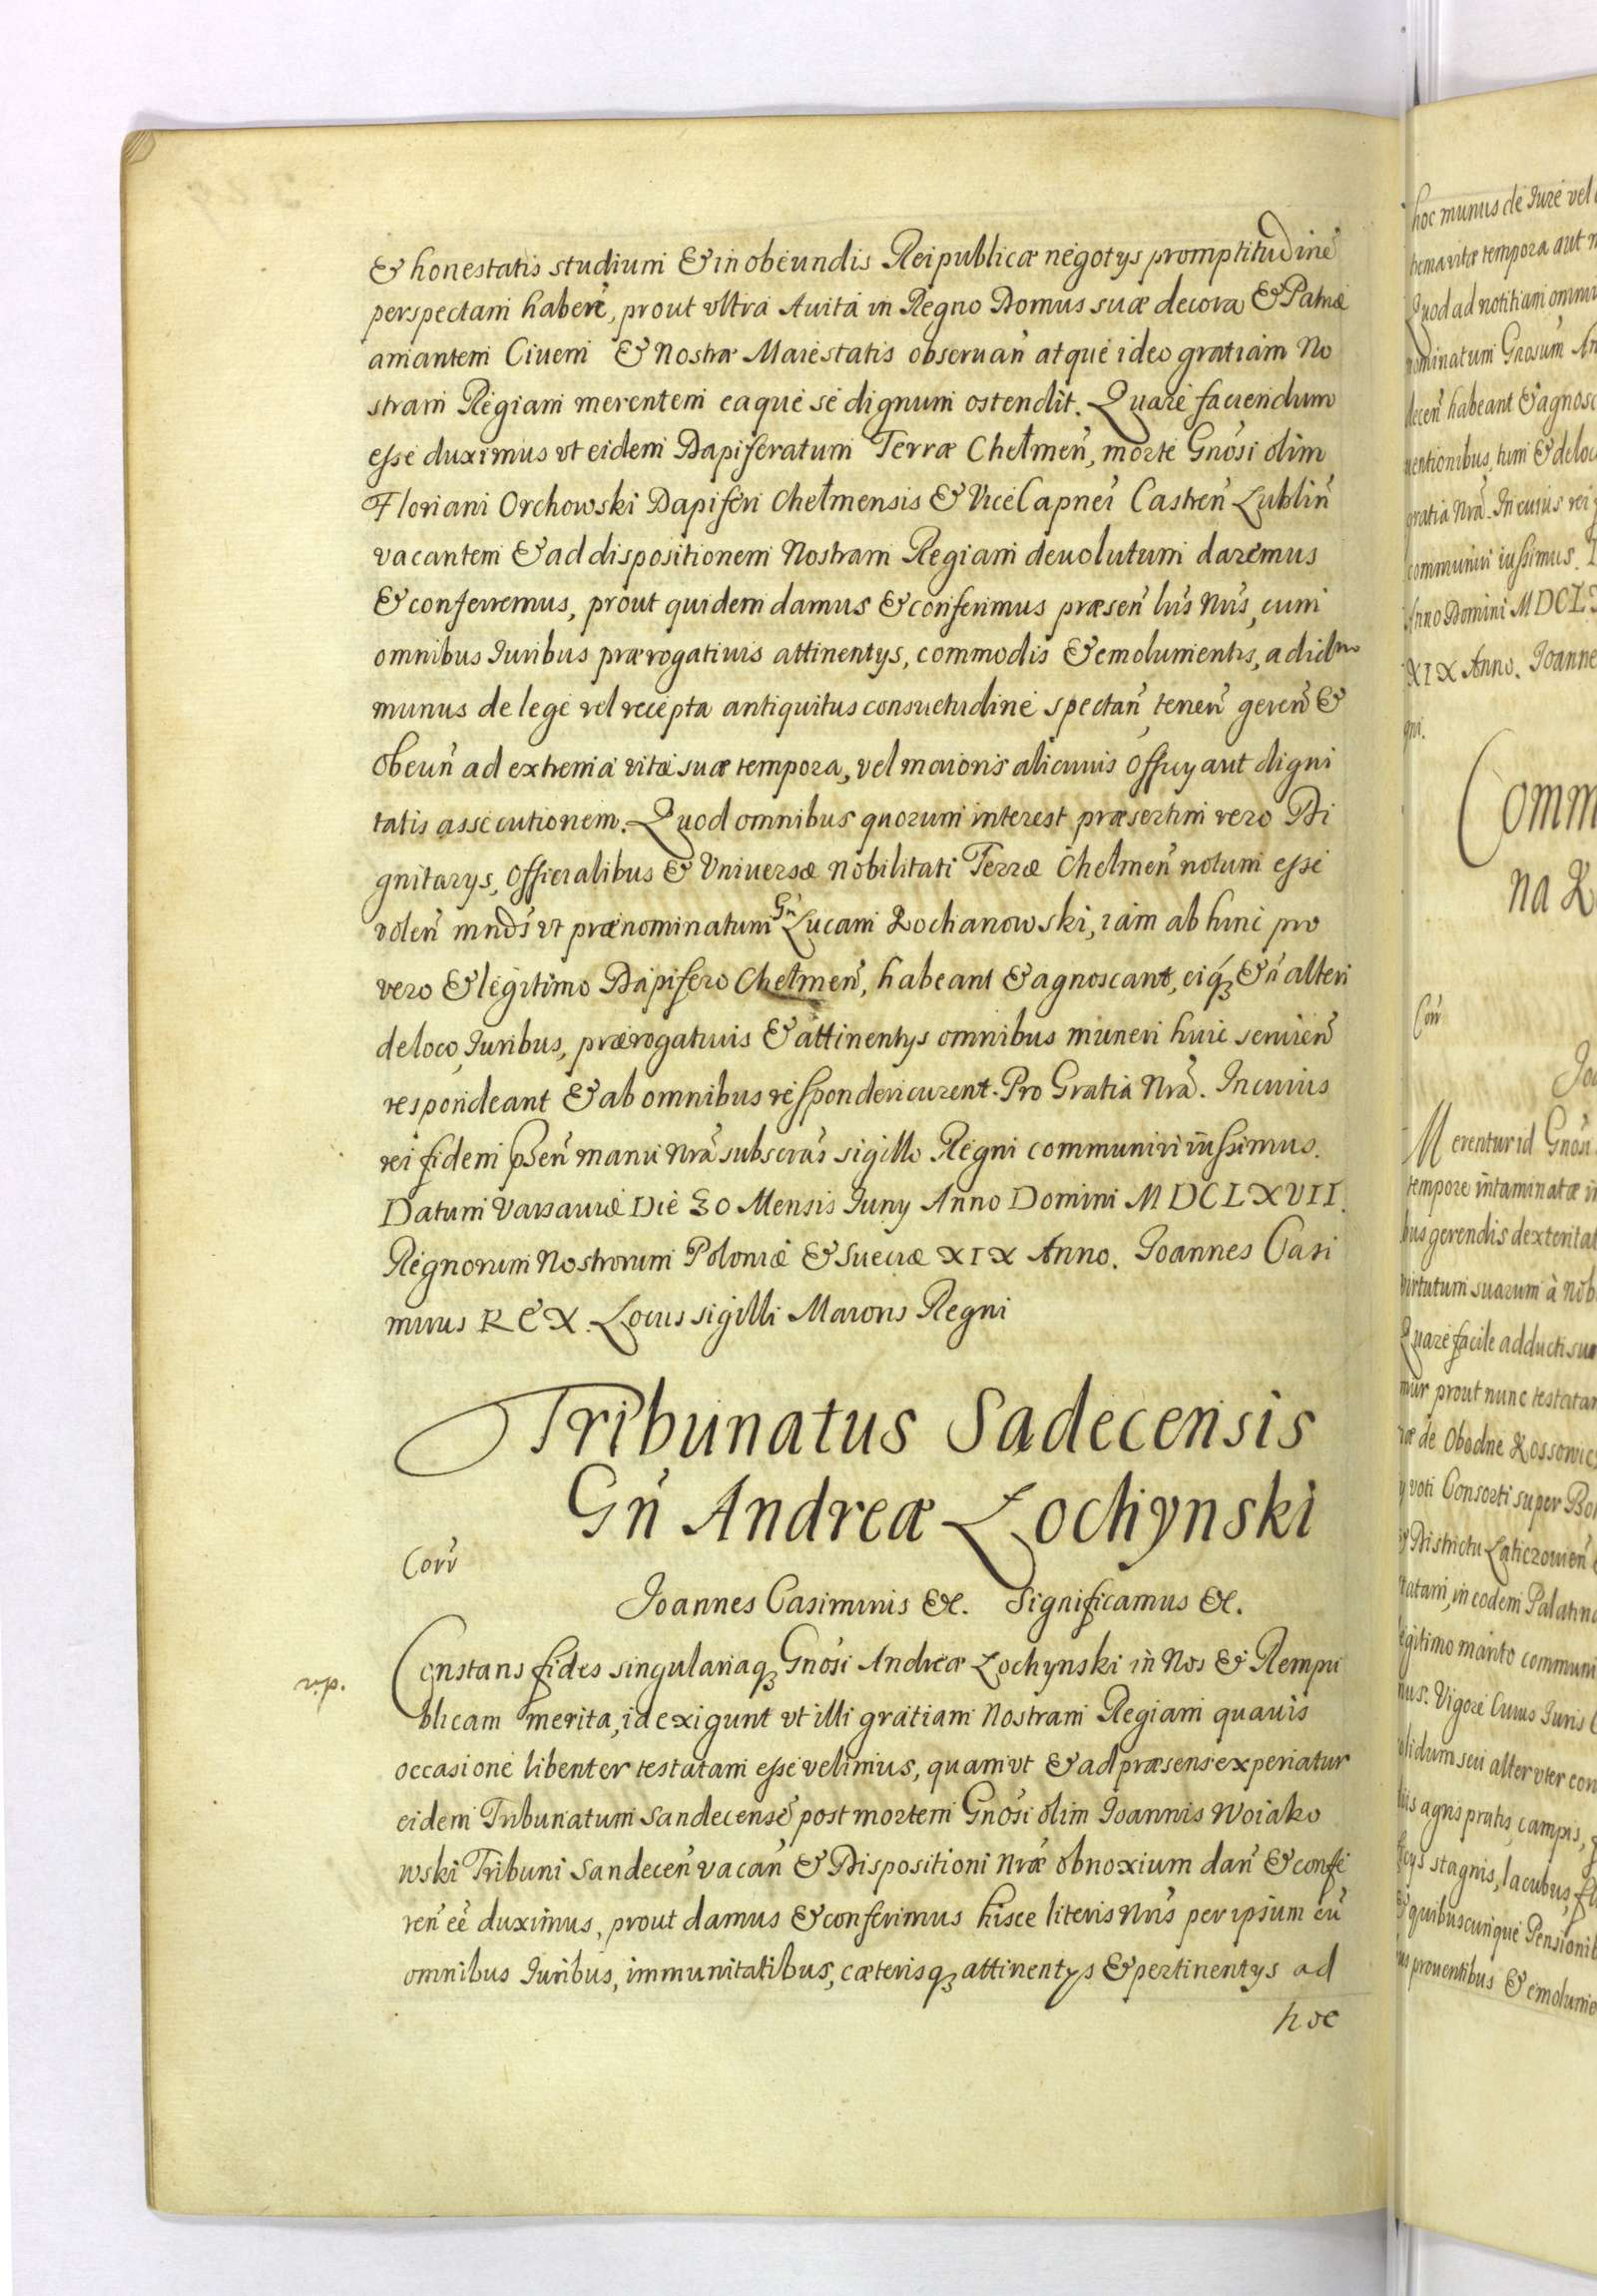 & honestatis studium & in obeundis Reipublicæ negotys promptitudinē
perspectam haberē, prout vltra Auita in Regno Domus suæ decora & Patriæ
amantem Ciuem & Nostræ Maiestatis obseruan̄ atque ideo gratiam No
stram Regiam merentem eaque se dignum ostendit. Quare faciendum
esse duximus vt eidem Dapiferatum Terræ Chełmen̄, morte Gnōsi olim
Floriani Orchowski Dapiferi Chełmensis & ViceCapnei Castren̄ Lublin̄
vacantem & ad dispositionem Nostram Regiam deuolutum daremus
& conferremus, prout quidem damus & conferimus præsen̄ lrīs Nrīs, cum
omnibus Iuribus prærogatiuis attinentys, commodis & emolumentis, ad id
munus de lege vel recepta antiquitus consuetudine spectan̄ tenen̄ geren̄ &
Obeun̄ ad extrema vitæ suæ tempora, vel maioris alicuius Officy aut digni
tatis assecutionem. Quod omnibus quorum interest præsertim vero Di
gnitarys, Officialibus & Vniuersæ Nobilitati Terræ Chelmen̄ notum esse
volen̄ mnds̄ vt prænominatum Gn̄ Lucam Kochanowski, iam ab hinc pro
vero & legitimo Dapifero Chełmen̄, habeant & agnoscant, eiq₃ & n̄ alteri
de loco, Iuribus, prærogatiuis & attinentys omnibus muneri huic seruien̄
respondeant & ab omnibus responderi curent. Pro Gratia Nrā. In cuius
rei fidem pn̄sen̄ manu Nrā subscrās sigillo Regni communiri iussimus.
Datum Varsauiæ Die 30 Mensis Iuny Anno Domini MDCLXVII.
Regnorum Nostrorum Poloniæ & Sueciæ XIX Anno. Joannes Casi
mirus REX. Locus sigilli Maioris Regni
Tribunatus Sadecensis
Gn̄ Andreæ Lochynski
Corr̄
Joannes Casimirus &c. Significamus &c.
Constans fides singulariaq₃ Gnōsi Andreæ Lochynski in Nos & Rempu
blicam merita, id exigunt vt illi gratiam Nostram Regiam quauis
occasione libenter testatam esse velimus, quam vt & ad præsens experiatur
eidem Tribunatum Sandecensē post mortem Gnōsi olim Joannis Woiako
wski Tribuni Sandecen̄ vacan̄ & Dispositioni Nrǣ obnoxium dan̄ & confe
ren̄ eē duximus, prout damus & conferimus hisce literis Nrīs per ipsum cū
omnibus Iuribus, immunitatibus, cæterisq₃ attinentys & pertinentys ad
hoc
hoc munus de Iure vel
trema vitæ tempora aut
Quod ad notitiam omniu
nominatum Gnosum An
decen̄ habeant & agnosc
uentionibus, tum & de loc
gratia Nrā. In cuius rei
communiri iussimus.
Anno Domini MDCL
XIX Anno. Joanne
gni.
Comm
na K
Corr̄
Joa
Merentur id Gnōsi
tempore intaminatæ in
bus gerendis dexteritat
virtutum suarum à Nob
Quare facile adducti su
mur prout nunc testatam
de Obodne Kossowic
voti Consorti super Bo
Districtu Laticzouien̄
tatam, in eodem Palatina
legitimo marito communi
mus. Vigore Cuius Iuris
solidum seu alter vter con
agris pratis, campis,
stagnis, lacubus, fl
& quibuscunque Pensionib
prouentibus & emolume